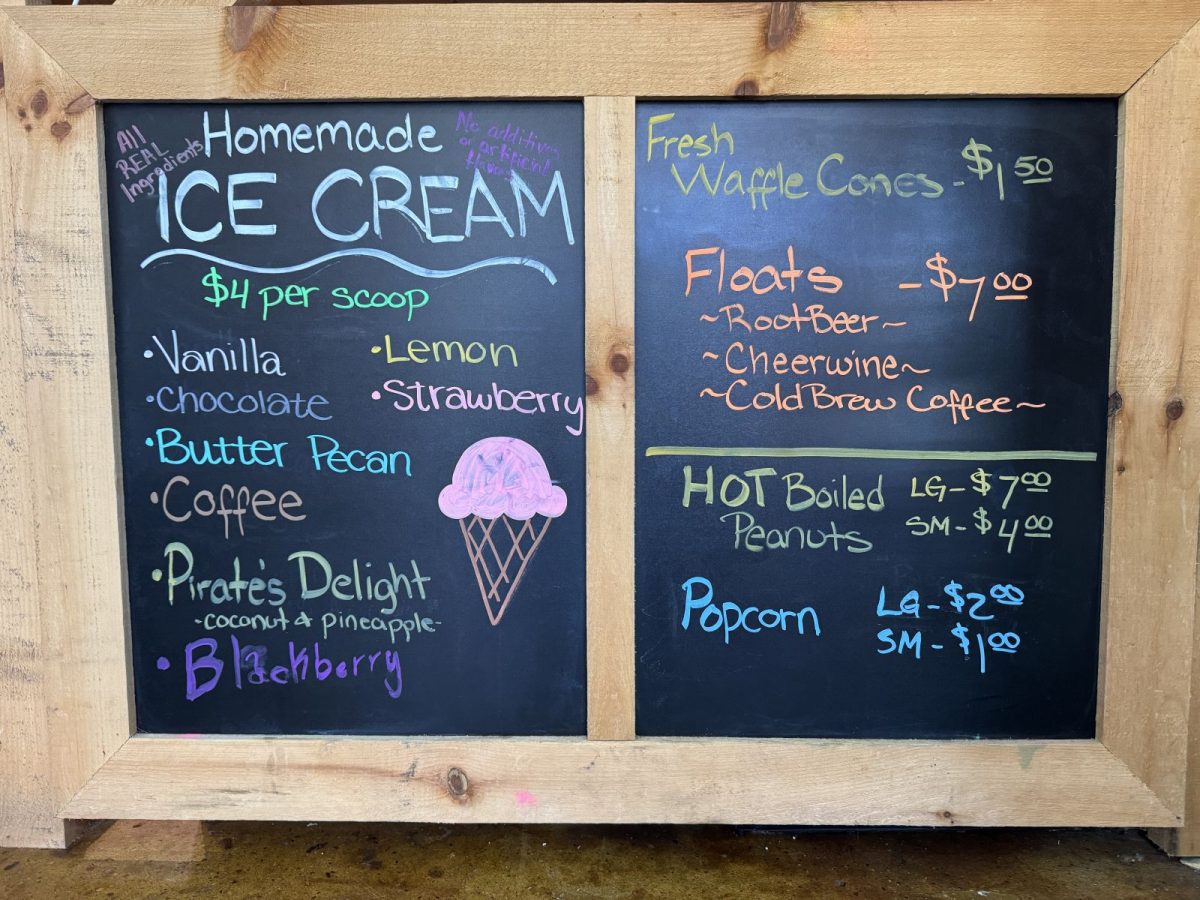 All
REAL
Ingredients
Homemade
No additives
or artificial
flavors
ICE CREAM
$4 per scoop
•Vanilla
•Lemon
•Chocolate
•Strawberry
•Butter Pecan
•Coffee
•Pirate's Delight
-coconut & pineapple-
•Blackberry
Fresh
Waffle Cones - $1 50
Floats - $7 00
~RootBeer~
~Cheerwine~
~Cold Brew Coffee~
HOT Boiled LG - $7 00
Peanuts SM - $4 00
Popcorn LG - $2 00
SM - $1 00